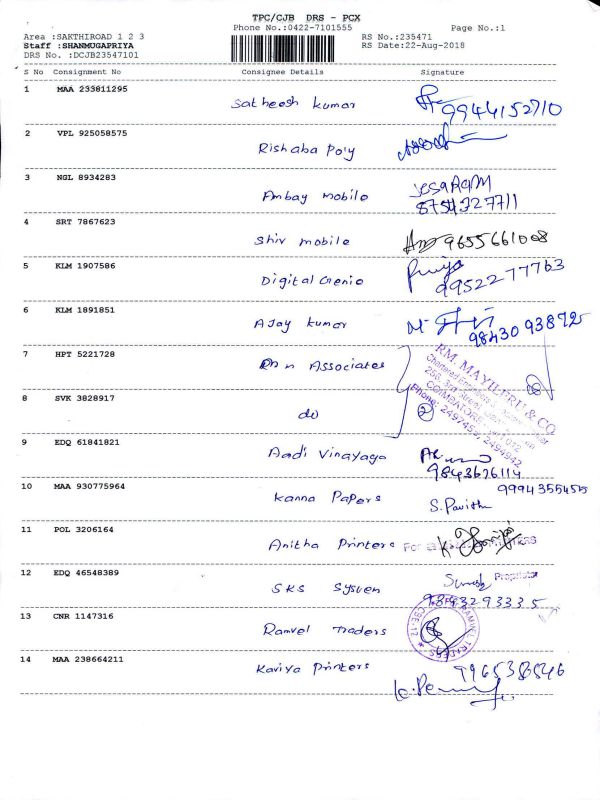 TPC/CJB DRS - PCX
Phone No.:0422-7101555 Page No.:1
Area :SAKTHIROAD 1 2 3 RS No.:235471
Staff :SHANMUGAPRIYA RS Date:22-Aug-2018
DRS No. :DCJB23547101
S No Consignment No Consignee Details Signature
1 MAA 233811295 Satheesh Kumar 9944152710
2 VPL 925058575 Rishaba Po'y
3 NGL 8934283 Ambay mobile Jesaram
8754327711
4 SRT 7867623 Shiv mobile 9655661008
5 KLM 1907586 Digital Genie Priya
9952277763
6 KLM 1891851 Ajay Kumar
9843093872
7 HPT 5221728 Associates
RM. MAYILERU & CO.
8 SVK 3828917 do 2
COIMBATORE
Phone: 2497459, 2494942
9 EDQ 61841821 Aadi Vinayaga
9843676114
10 MAA 930775964 Kanna Papers 9994355455
S. Pavithr
11 POL 3206164 Anitha Printers For
12 EDQ 46548389 SKS System Proprietor
9843293335
13 CNR 1147316 Ramvel Traders
14 MAA 238664211 Kaviya Printers